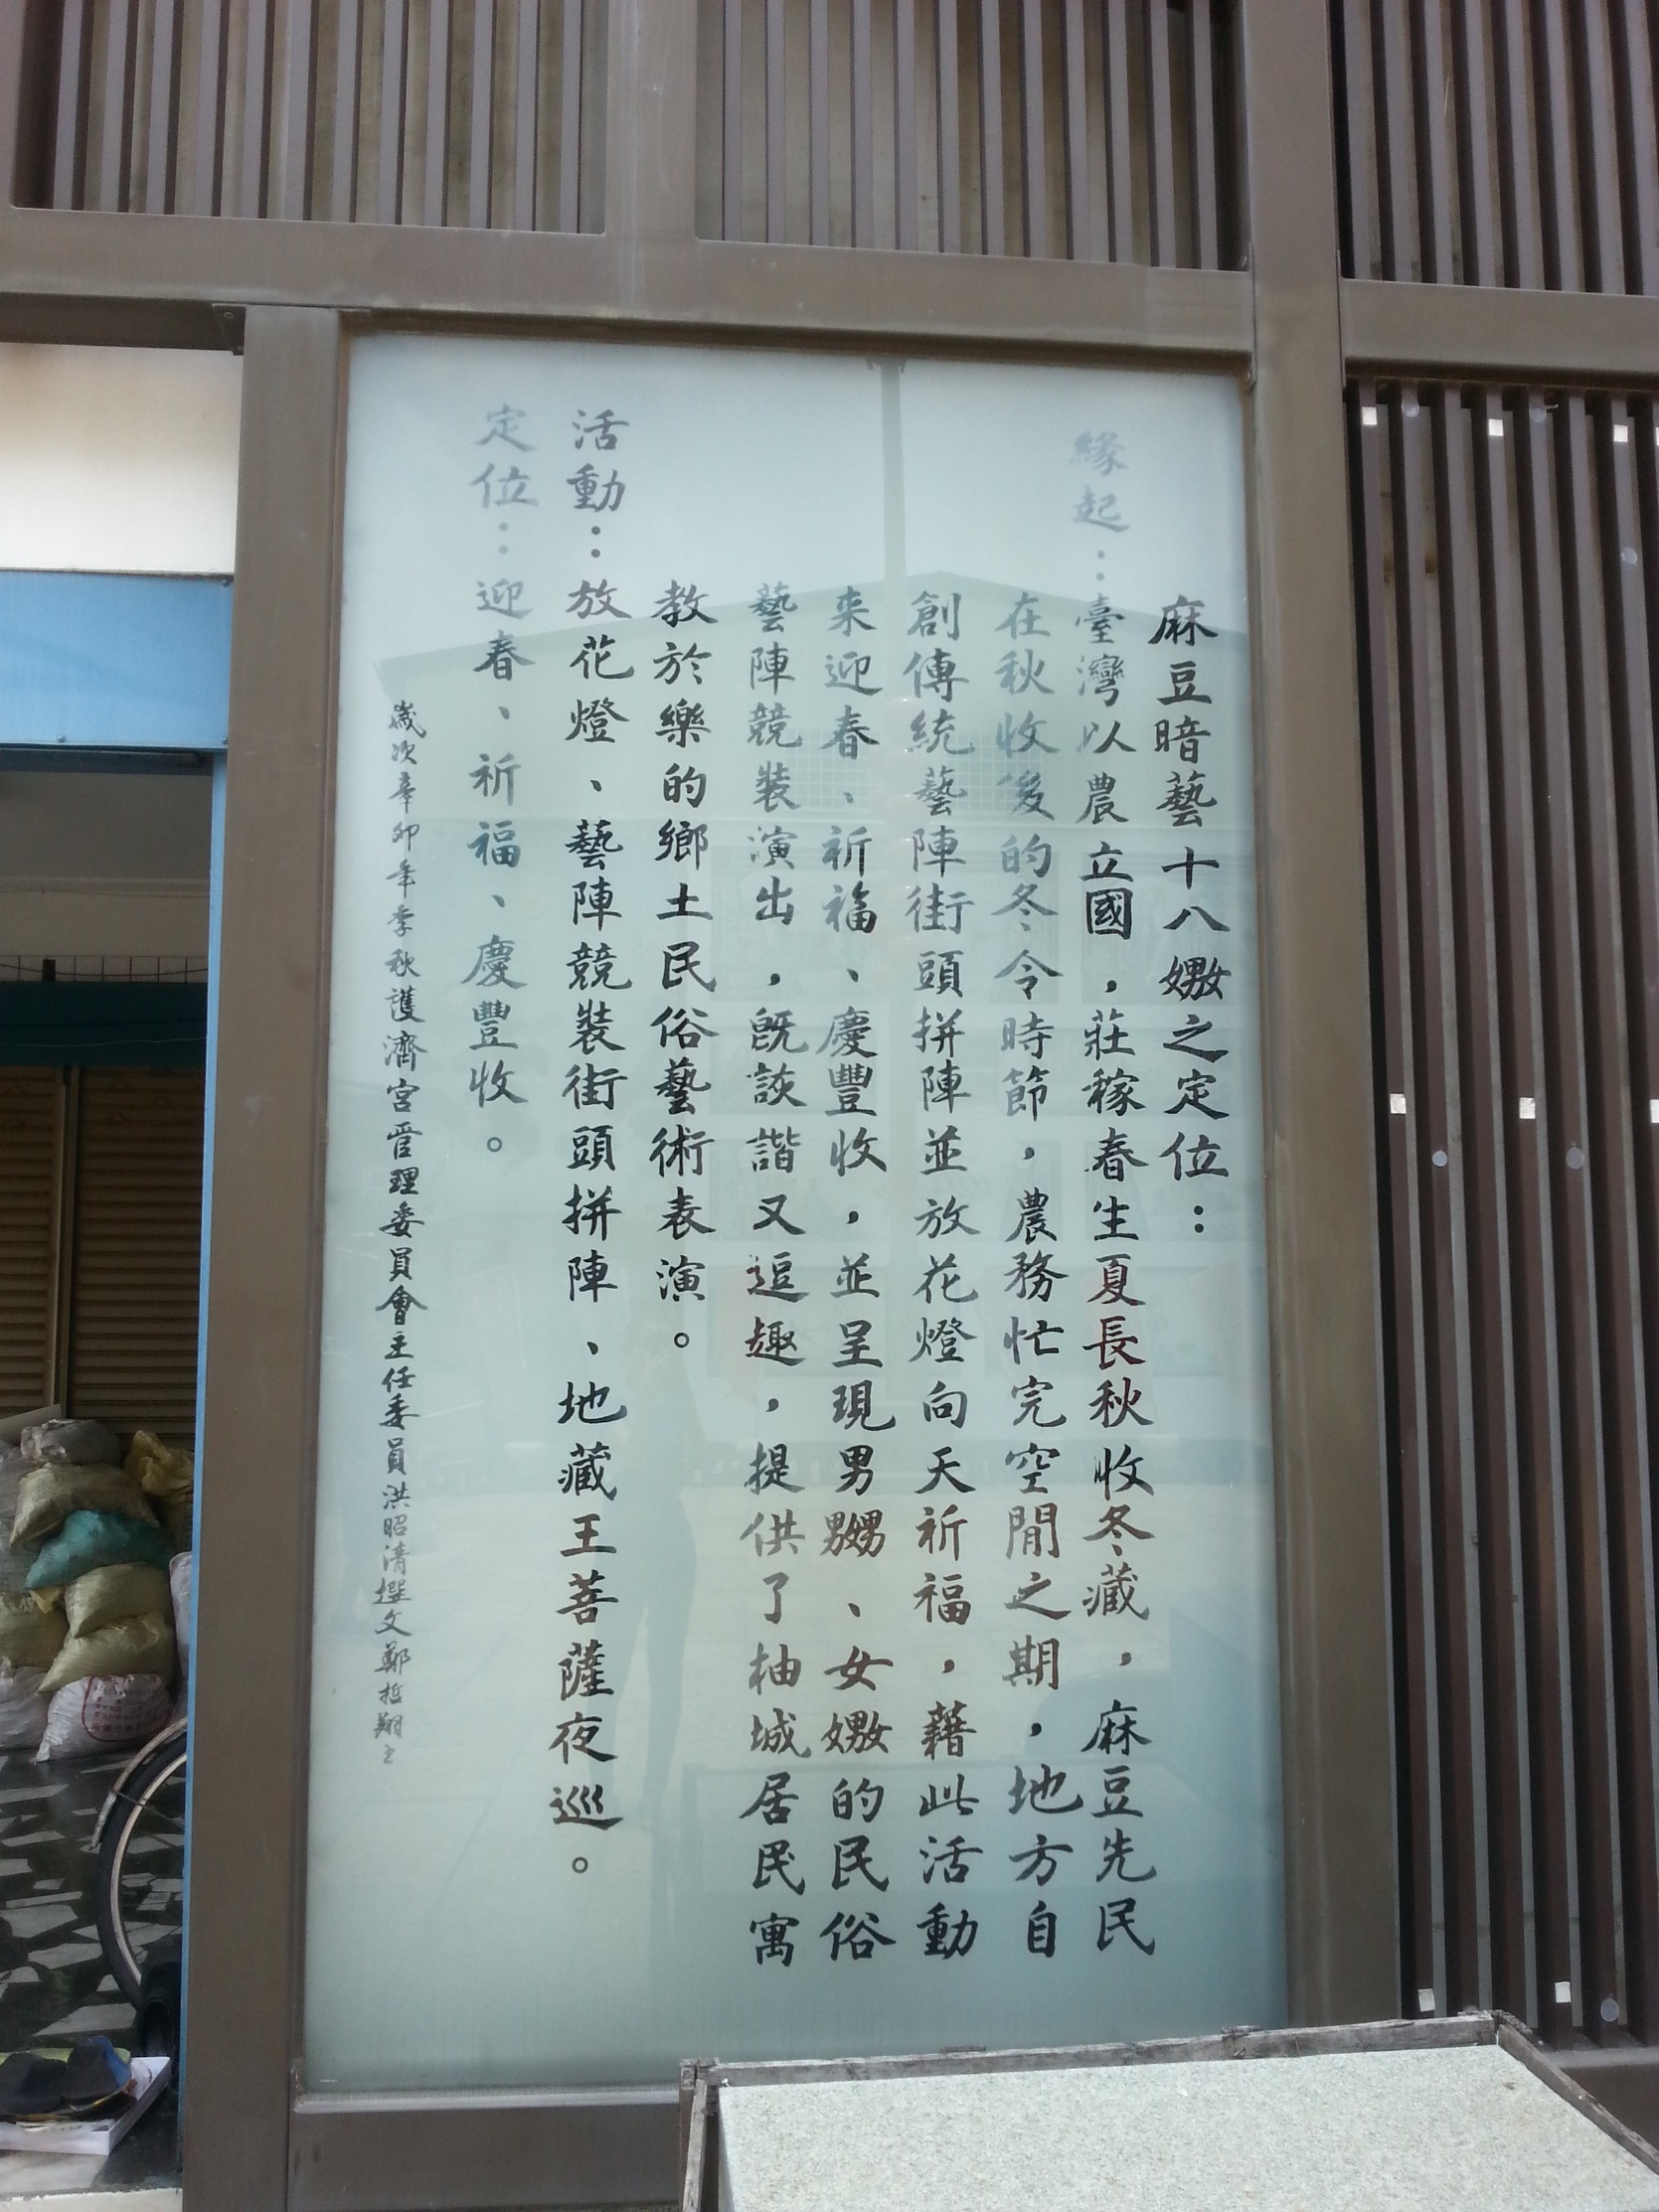 麻豆暗藝十八嬲之定位：
緣起：臺灣以農立國，莊稼春生夏長秋收冬藏，麻豆先民
在秋收後的冬令時節，農務忙完空閒之期，地方自
創傳統藝陣街頭拼陣並放花燈向天祈福，藉此活動
來迎春、祈福、慶豐收，並呈現男嬲、女嫐的民俗
藝陣競裝演出，既詼諧又逗趣，提供了柚城居民寓
教於樂的鄉土民俗藝術表演。
活動：放花燈、藝陣競裝街頭拼陣、地藏王菩薩夜巡。
定位：迎春、祈福、慶豐收。
歲次辛卯年季秋護濟宮管理委員會主任委員洪昭清撰文鄭哲翔